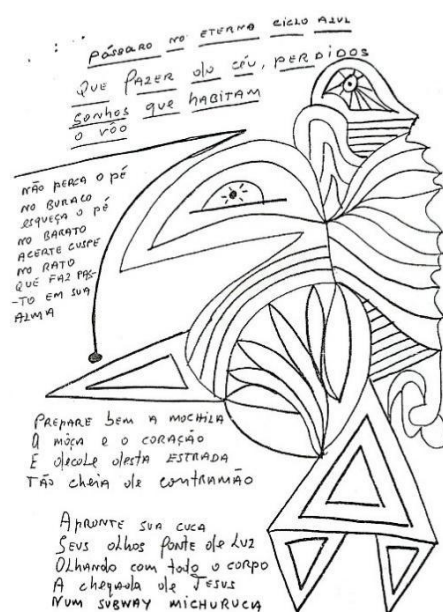 PÁSSARO NO ETERNO CICLO AZUL
QUE FAZER do CÉU, PERDIDOS
SONHOS QUE HABITAM
O VÔO
NÃO PERCA O PÉ
NO BURACO
ESQUEÇA O PÉ
NO BARATO
ACERTE CUSPE
NO RATO
QUE FAZ PAS-
-TO EM SUA
ALMA
PREPARE bEM A MOCHILA
A MÔÇA E O CORAÇÃO
E dECOLE dESTA ESTRADA
TÃO cheia de CONTRAMÃO
APRONTE SUA CUCA
SEUS OLHOS FONTE de LUZ
OLHANDO COM todo O CORPO
A chegada de JESUS
NUM SUBWAY MICHURUCA